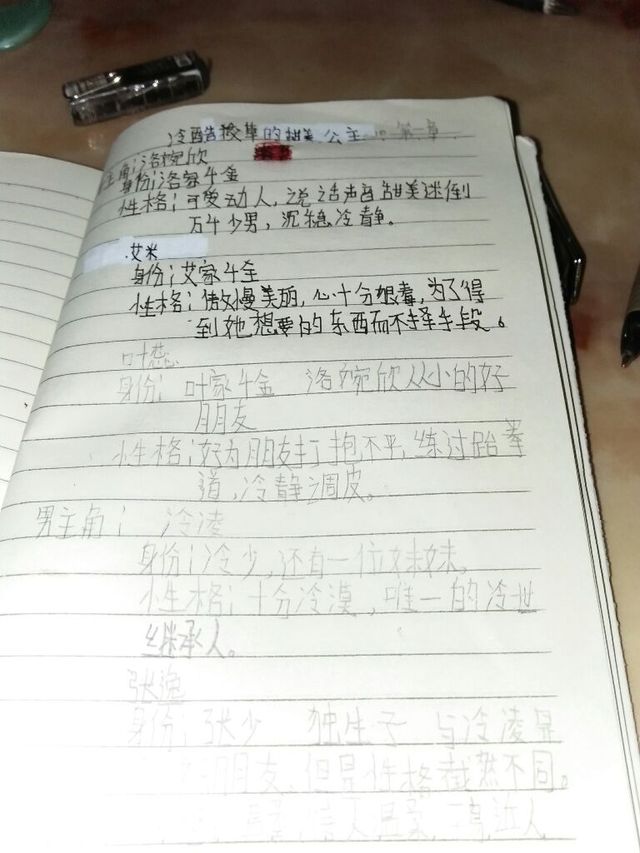 冷酷校草的甜美公主 第一章
主角:洛婉欣
身份:洛家千金
性格:可爱动人,说话声音甜美迷倒
万千少男,沉稳冷静。
艾米
身份:艾家千金
性格:傲慢美丽,心十分狠毒,为了得
到她想要的东西而不择手段。
叶蕊
身份:叶家千金 洛婉欣从小的好
朋友
性格:好为朋友打抱不平,练过跆拳
道,冷静调皮。
男主角: 冷凌
身份:冷少,还有一位妹妹。
性格:十分冷漠,唯一的冷世
继承人。
张逸
身份:张少 独生子 与冷凌是
朋友,但是性格截然不同。
近人